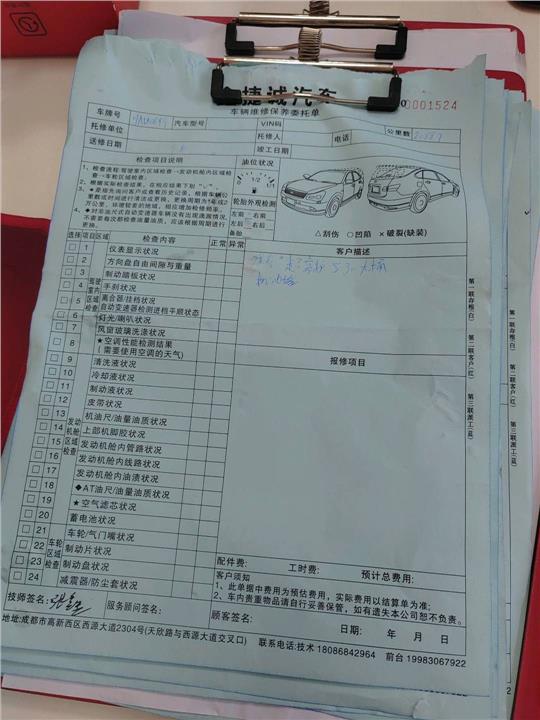 捷诚汽车
车辆维修保养委托单
0001524
车牌号
汽车型号
VIN码
公里数
托修单位
托修人
电话
送修日期
竣工日期
检查项目说明
油位状况
1、检查流程:驾驶室内区域检查→发动机舱内区域检查→车轮区域检查。
2、根据实际检查结果,在相应结果下划“√”。
1/2
1/1
轮胎外观检测
左前 右前
左后 右后
备胎
△刮伤 ○凹陷 ×破裂(缺装)
选择 项目区域 检查内容 正常 异常
客户描述
1 仪表显示状况
2 方向盘自由间隙与重量
3 制动踏板状况
4 手刹状况
5 离合器/挂档状况
自动变速器检测进档平顺状态
6 灯光/喇叭状况
7 风窗玻璃洗涤状况
8 ★空调性能检测结果
(需要使用空调的天气)
驾驶室内区域检查
报修项目
9 清洗液状况
10 冷却液状况
11 制动液状况
12 皮带状况
13 机油尺/油量油质状况
14 上部机脚胶状况
15 发动机舱内管路状况
16 发动机舱内线路状况
17 发动机舱内油渍状况
18 ◆AT油尺/油量油质状况
19 ★空气滤芯状况
20 蓄电池状况
发动机舱区域检查
21 车轮/气门嘴状况
22 制动片状况
23 制动盘状况
24 减震器/防尘套状况
车轮区域检查
第一联存根(白)
第二联客户(红)
第三联派工(蓝)
配件费: 工时费: 预计总费用:
客户须知
1、此单据中费用为预估费用,实际费用以结算单为准;
2、车内贵重物品请自行妥善保管,如有遗失本公司恕不负责。
技师签名: 服务顾问签名: 顾客签名: 日期: 年 月 日
地址:成都市高新西区西源大道2304号(天欣路与西源大道交叉口) 联系电话:技术 18086842964 前台 19983067922
第一联存根(白)
第二联客户(红)
第三联派工(蓝)